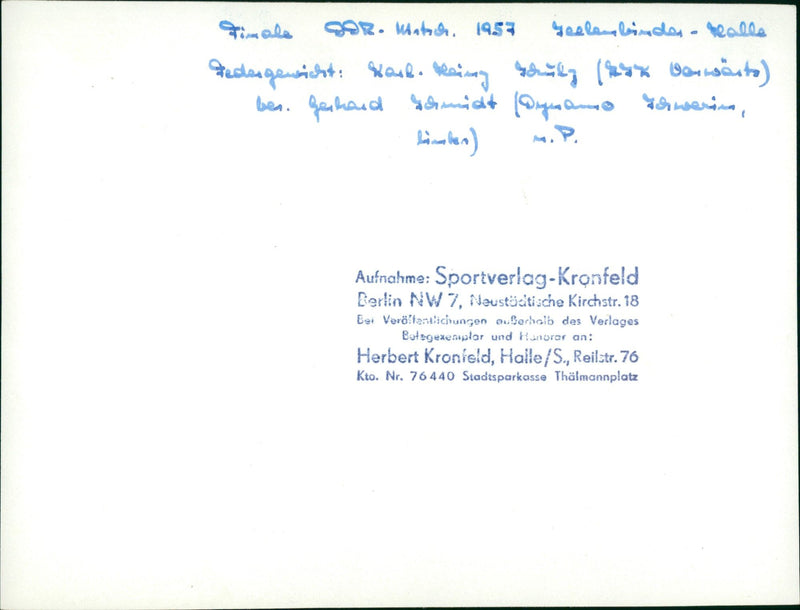 Finale DDR-Mstsch. 1957 Seelenbinder-Halle
Federgewicht: Karl-Heinz Schulz (ZSK Vorwärts)
bes. Gerhard Schmidt (Dynamo Schwerin,
links) n.P.
Aufnahme: Sportverlag-Kronfeld
Berlin NW 7, Neustädtische Kirchstr. 18
Bei Veröffentlichungen außerhalb des Verlages
Belegexemplar und Honorar an:
Herbert Kronfeld, Halle/S., Reilstr. 76
Kto. Nr. 76440 Stadtsparkasse Thälmannplatz